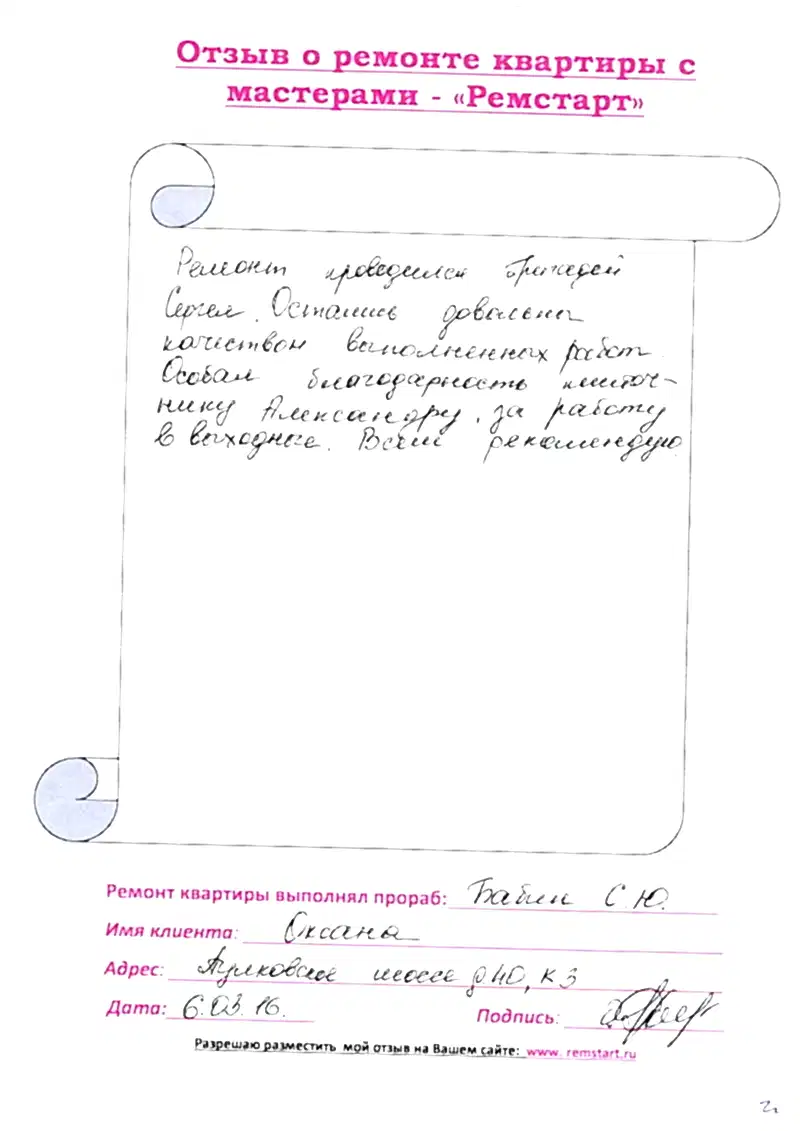 Отзыв о ремонте квартиры с
мастерами - «Ремстарт»
Ремонт проводился бригадой
Сергея. Остались довольны
качеством выполненных работ.
Особая благодарность плиточ-
нику Александру, за работу
в выходные. Всем рекомендую
Ремонт квартиры выполнял прораб: Бабин С.Ю.
Имя клиента: Оксана
Адрес: Пулковское шоссе д 40, к 3
Дата: 6.03.16.
Подпись:
Разрешаю разместить мой отзыв на Вашем сайте: www. remstart.ru